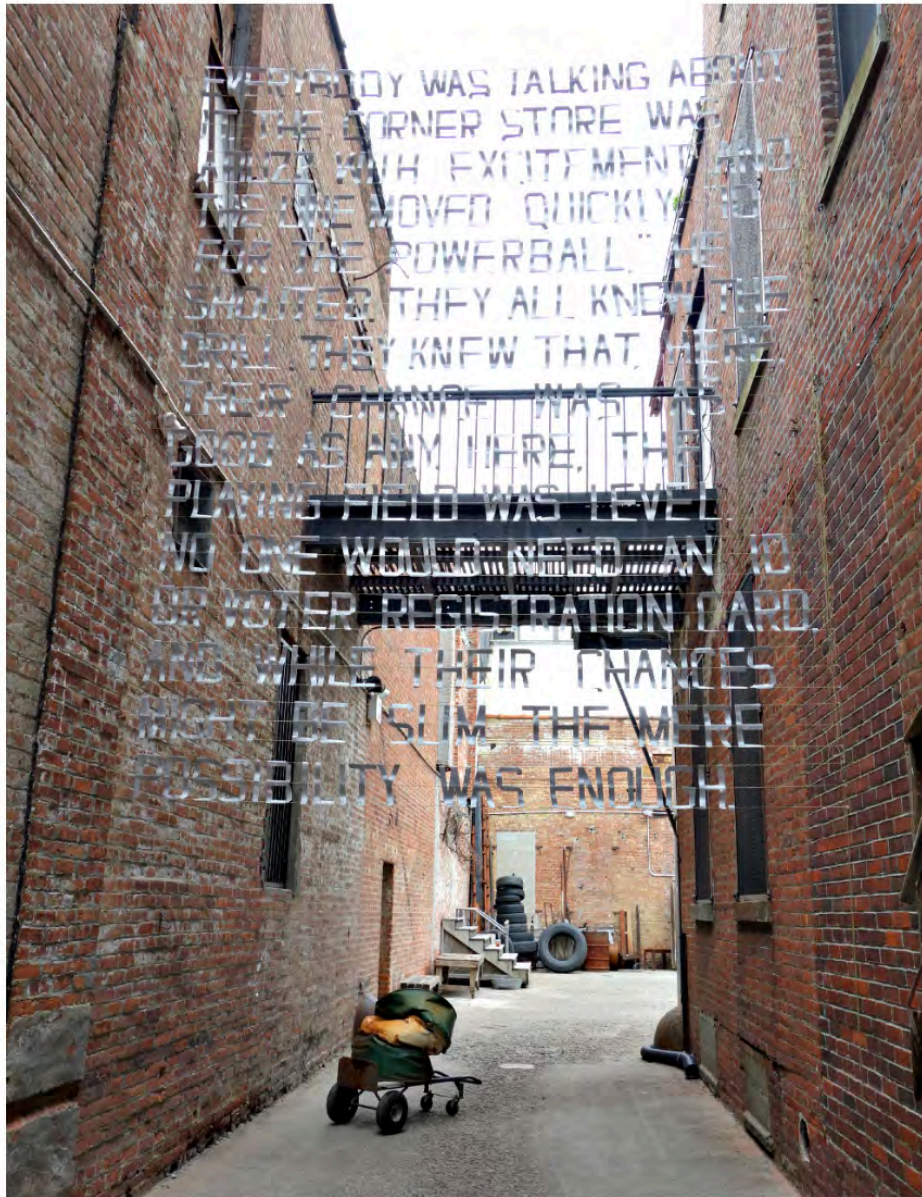 EVERYBODY WAS TALKING ABOUT
IT. THE CORNER STORE WAS
ABUZZ WITH EXCITEMENT AND
THE LINE MOVED QUICKLY.
FOR THE POWERBALL," HE
SHOUTED. THEY ALL KNEW THE
DRILL. THEY KNEW THAT, HERE
THEIR CHANCE WAS AS
GOOD AS ANY. HERE, THE
PLAYING FIELD WAS LEVEL.
NO ONE WOULD NEED AN ID
OR VOTER REGISTRATION CARD,
AND WHILE THEIR CHANCES
MIGHT BE SLIM, THE MERE
POSSIBILITY WAS ENOUGH.